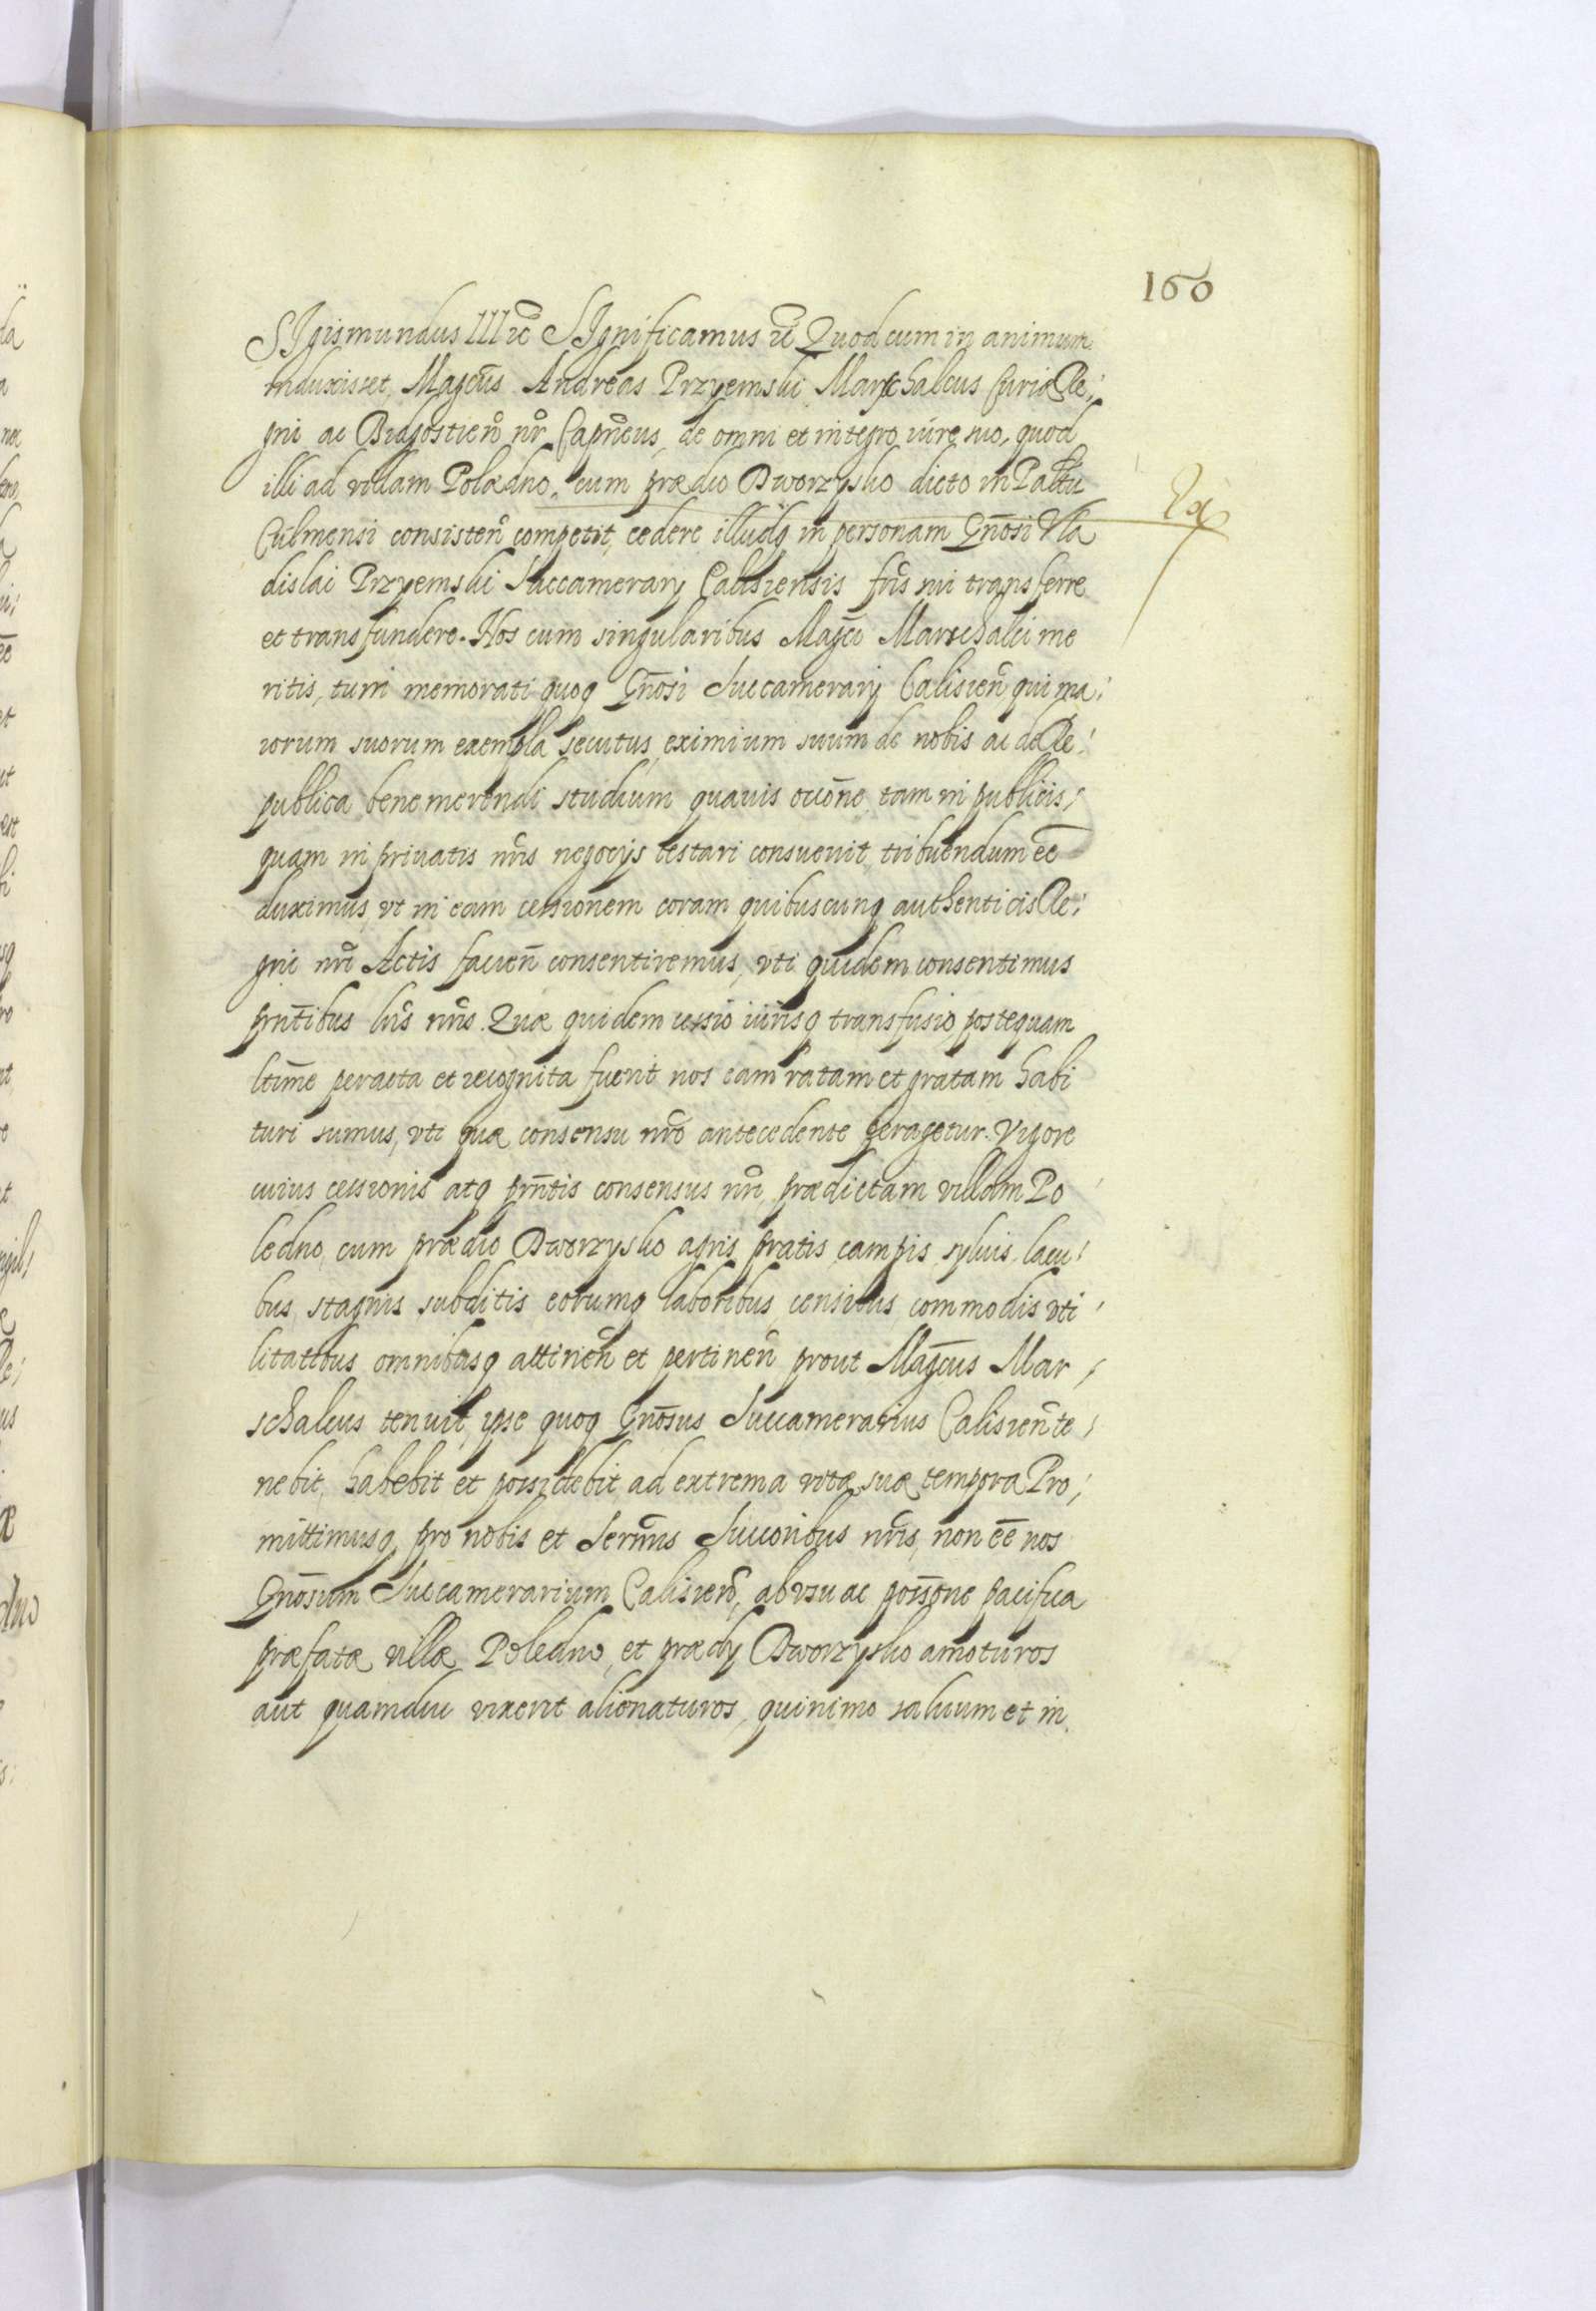 160
SIgismundus III etc̄ SIgnificamus etc̄ Quod cum in animum
induxisset, Magcūs Andreas Przyemski Marschalcus Curiæ Re:
gni ac Bidgostien̄ nr̄ Capn̄eus, de omni et integro iúre suo, quod
illi ad villam Polædno, cum prædio Dworzysko dicto in Paltu
Culmensi consisten̄ competit, cedere illudq in personam Gn̄osi Vla
dislai Przyemski Succamerarij Calisiensis fr̄is sui transferre
et transfundere. Nos cum singularibus Magc̄i Marschalci me
ritis, tum memorati quoq Gn̄osi Succamerarij Calisien̄ qui ma:
iorum suorum exempla secutus, eximium suum de nobis ac de Re:
publica benemerendi studium quauis occōne tam in publicis,
quam in priuatis nr̄is negocijs testari consueuit, tribuendum eē
duximus, vt in eam cessionem coram quibuscunq authenticis Re:
gni nr̄i Actis facien̄ consentiremus, vti quidem consentimus
pn̄tibus lr̄is nr̄is. Quæ quidem cessio iurisq transfusio, postequam
ltīme peracta et recognita fuerit nos eam ratam et gratam habi
turi sumus, vti quæ consensu nr̄o antecedente peragetur. Vigore
cuius cessionis atq pn̄tis consensus nr̄i, prædictam villam Po
ledno, cum prædio Dworzysko agris, pratis, campis, syluis, lacu:
bus, stagnis subditis eorumq laboribus, censibus commodis vti
litatibus omnibusq attinen̄ et pertinen̄ prout Magcūs Mar,
schalcus tenuit, ipse quoq Gn̄osus Succamerarius Calisien̄ te,
nebit, habebit et possidebit, ad extrema vitæ suæ tempora Pro,
mittimusq pro nobis et Serm̄is Succoribus nr̄is, non eē nos
Gn̄osum Succamerarium Calisien̄, ab vsu ac possōne pacifica
præfatæ villæ Poledno, et prædij Dworzysko amoturos
aut quamdiu vixerit alienaturos, quinimo saluum et in